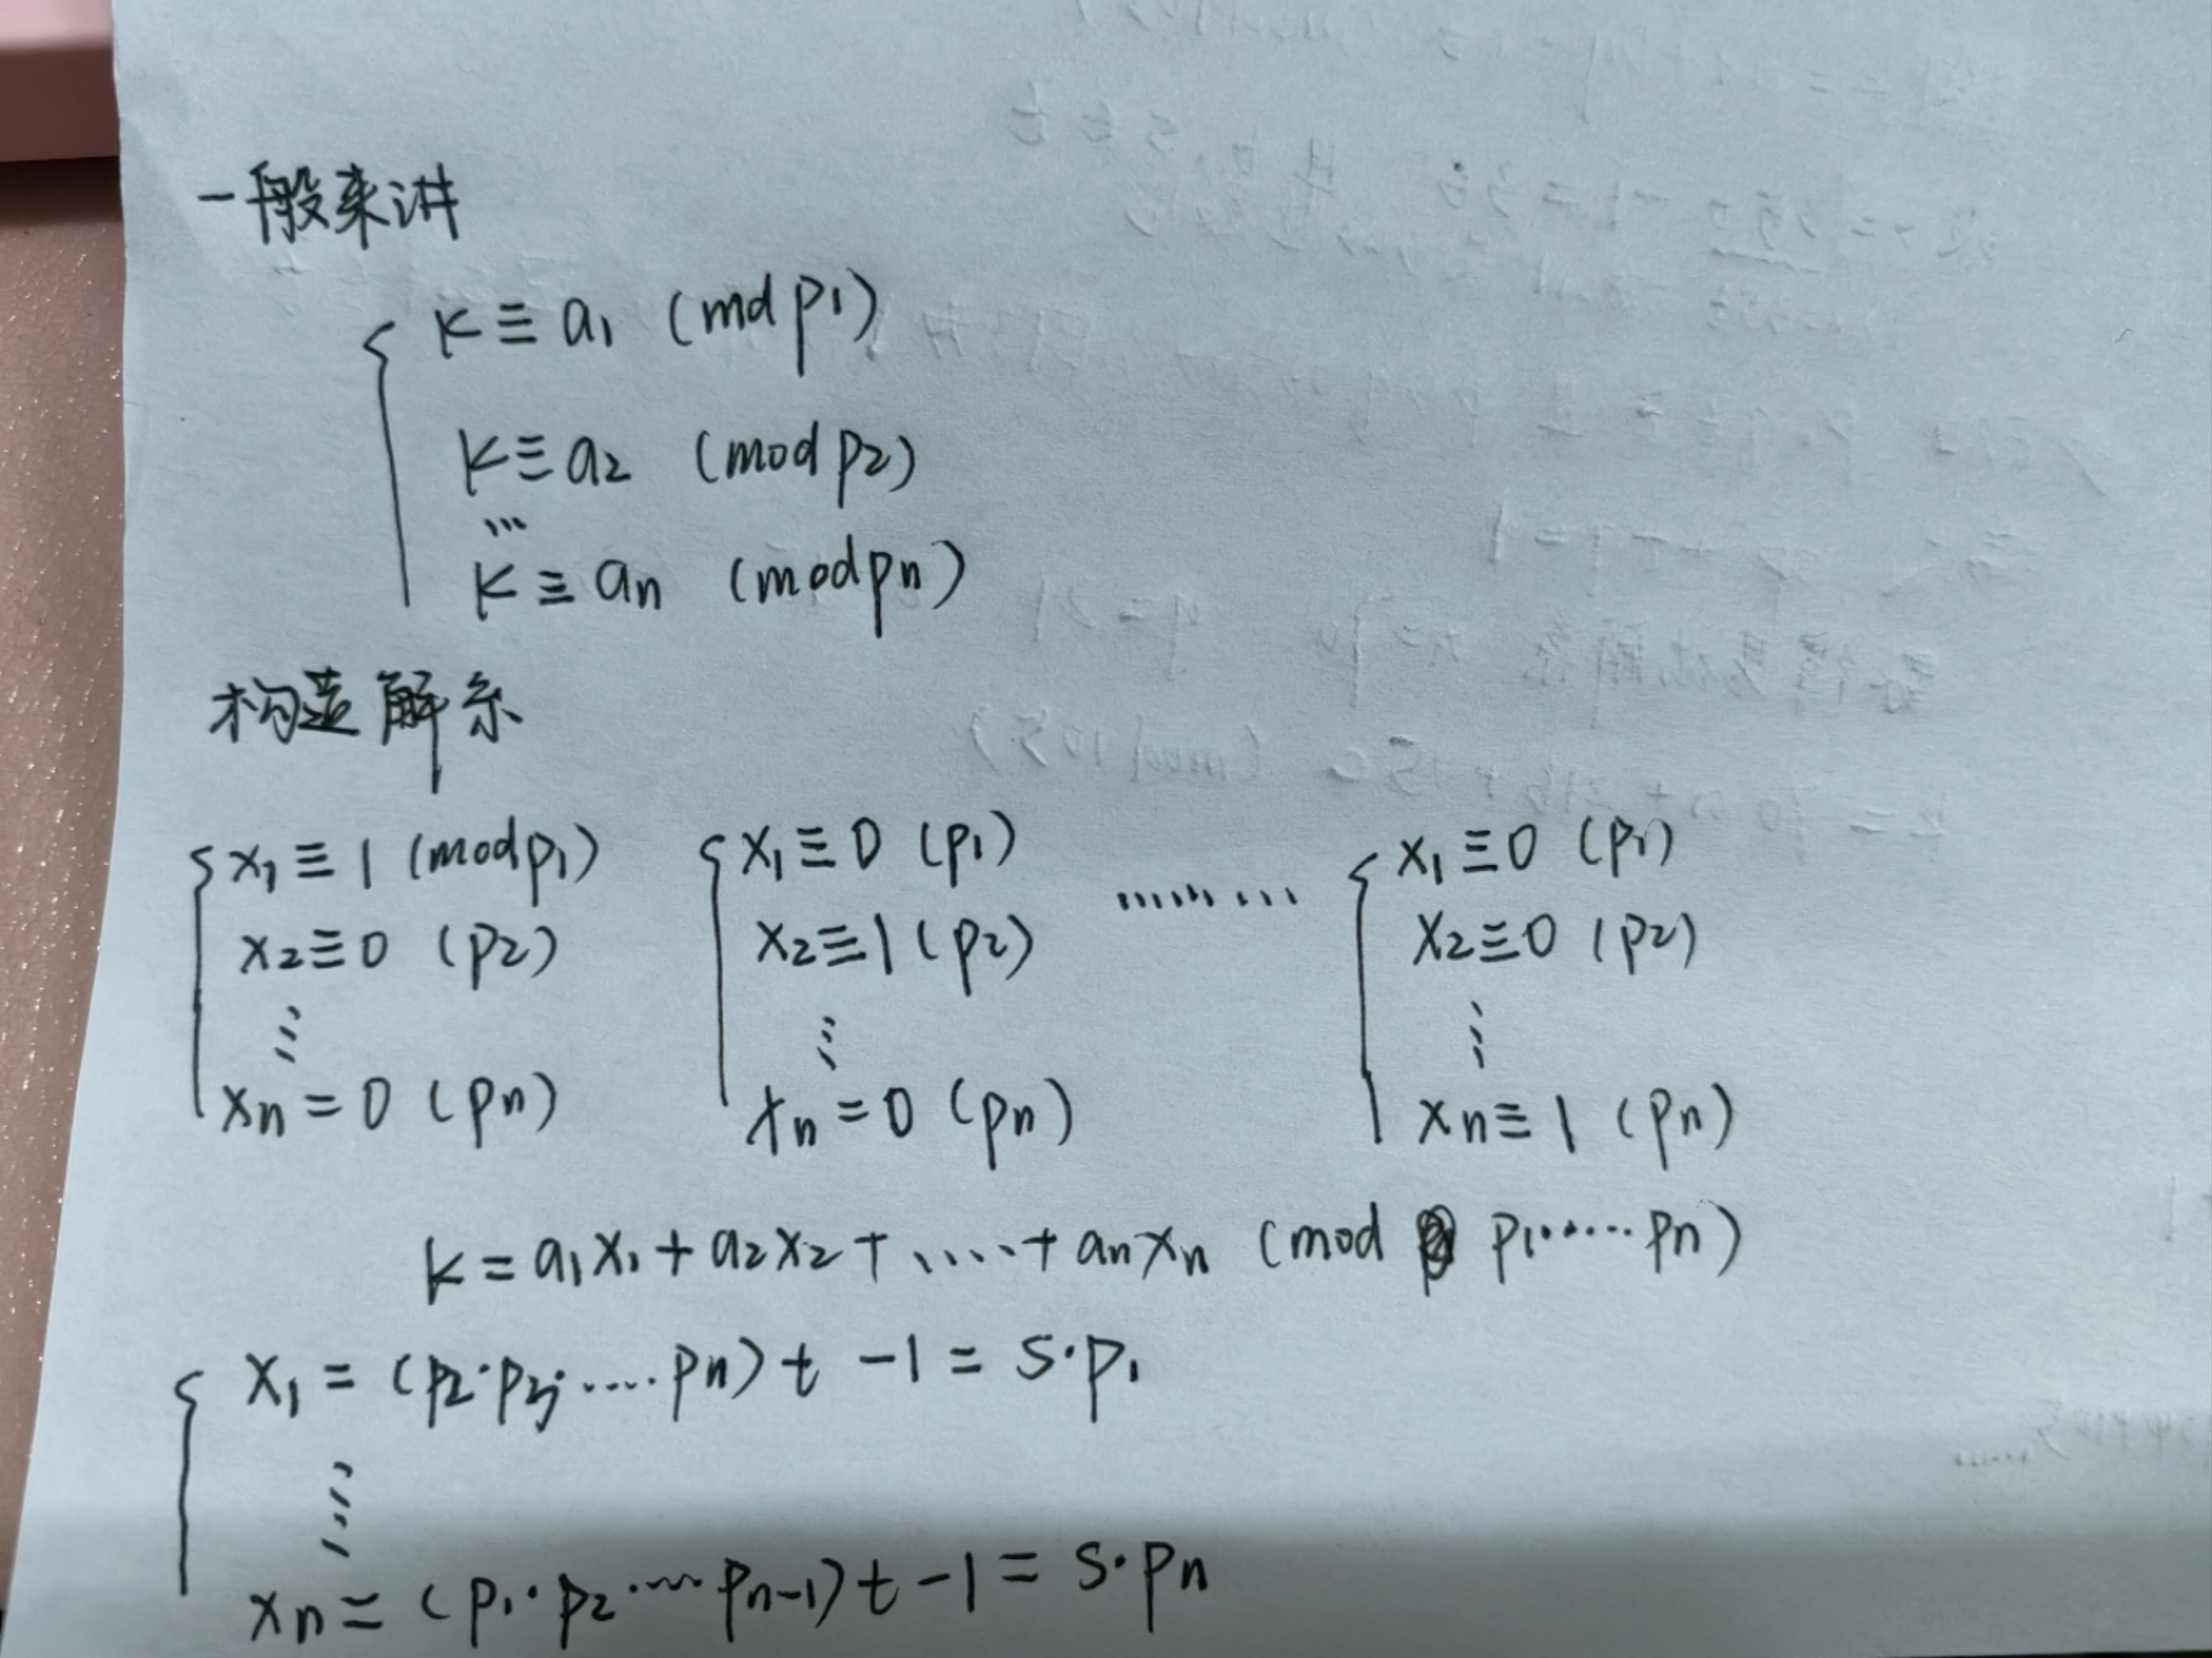 一般来讲
K ≡ a1 (md p1)
K ≡ a2 (mod p2)
...
K ≡ an (mod pn)
构造解系
x1 ≡ 1 (mod p1) x1 ≡ 0 (p1) ......... x1 ≡ 0 (p1)
x2 ≡ 0 (p2) x2 ≡ 1 (p2) x2 ≡ 0 (p2)
⋮ ⋮ ⋮
xn = 0 (pn) xn = 0 (pn) xn ≡ 1 (pn)
K = a1x1 + a2x2 + ..... + anxn (mod p1......pn)
x1 = (p2·p3·.....pn) t - 1 = s·p1
⋮
xn = (p1·p2·...pn-1) t - 1 = s·pn